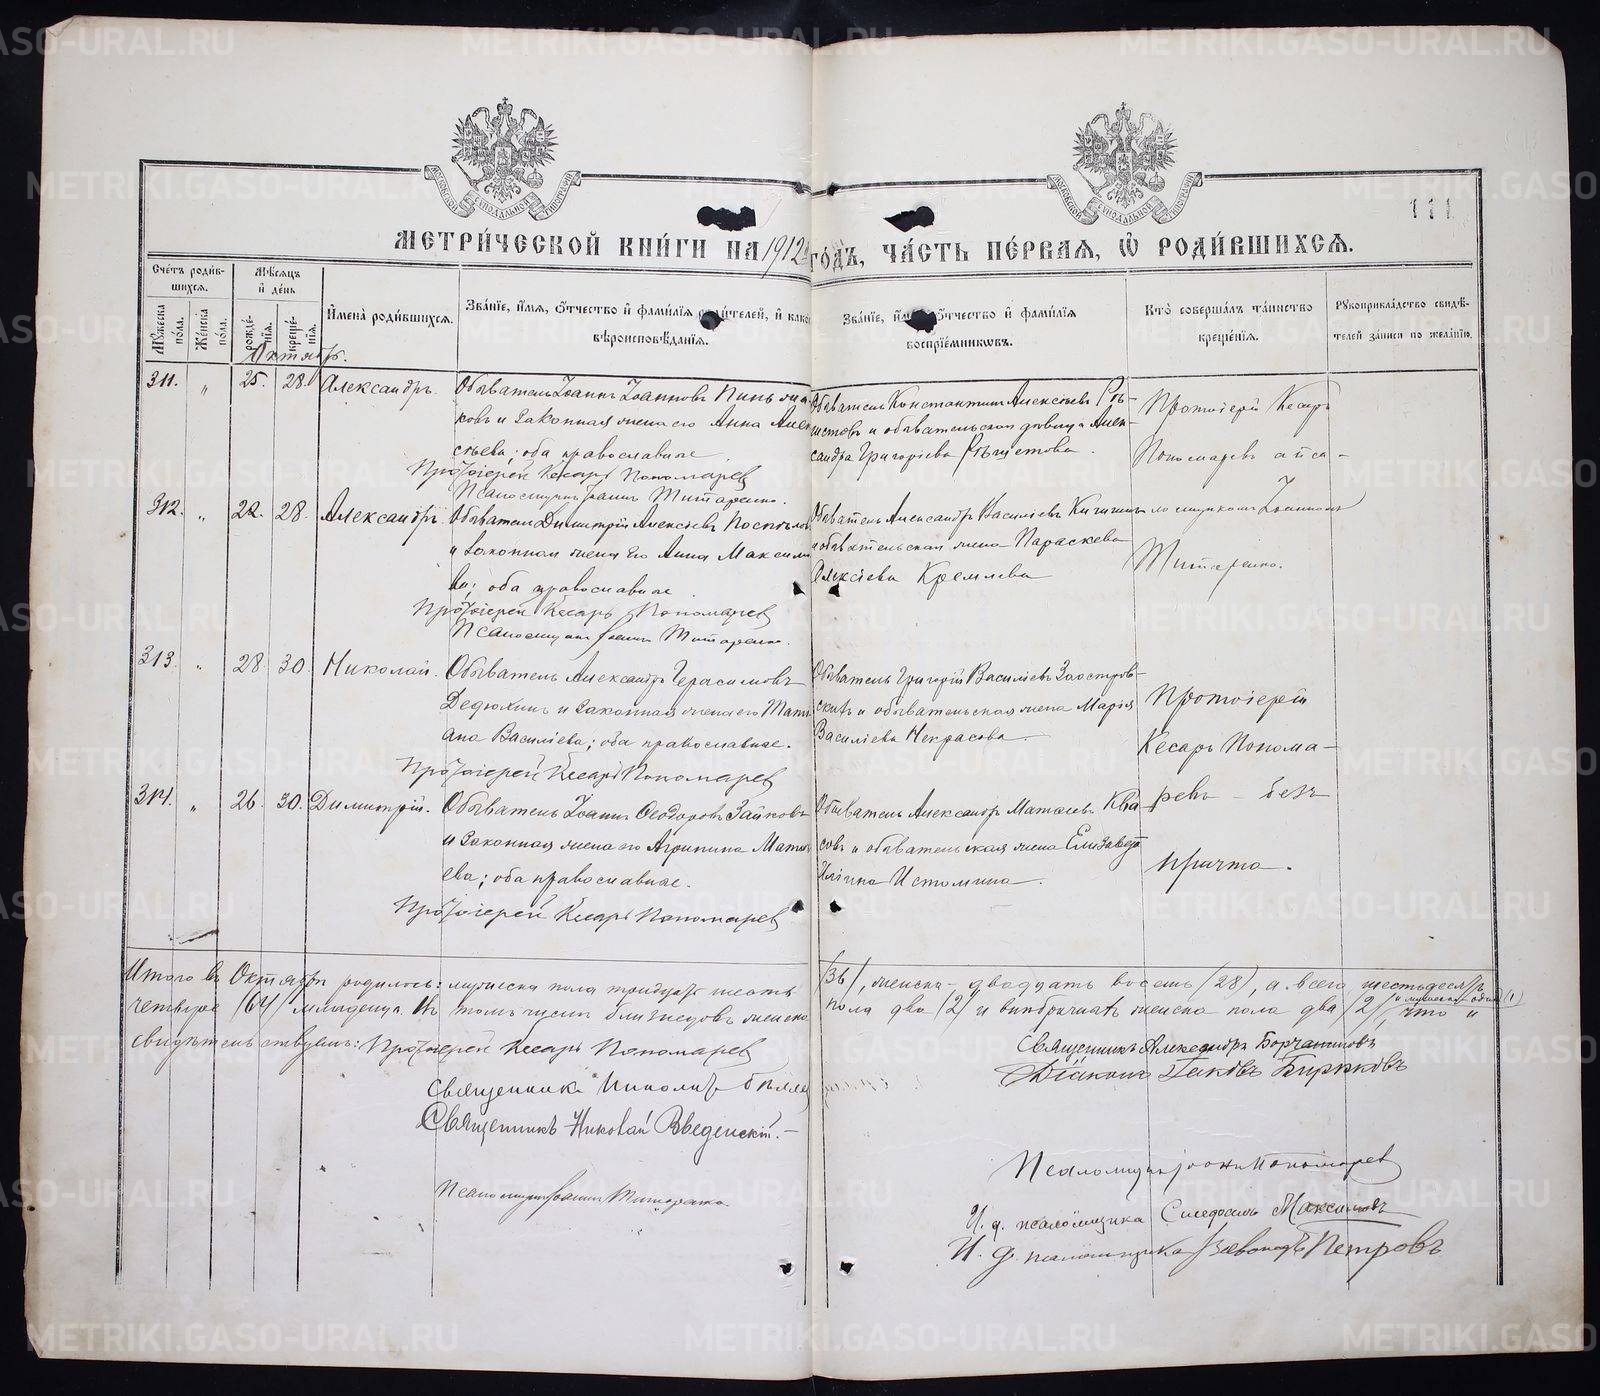 111
МЕТРИ́ЧЕСКОЙ КНИ́ГИ НА 1912 ГО́ДЪ, ЧА́СТЬ ПЕ́РВАЯ, Ѽ РОДИ́ВШИХСЯ.
Сче́тъ роди́в-
шихся.
Мѣ́сяцъ
и де́нь
Мꙋжеска по́ла.
Же́нска по́ла.
рожде́-
нїя.
креще́-
нїя.
И҆мена̀ роди́вшихся.
Зва́нїе, и҆́мя, ѻ҆́тчество и҆ фами́лїя роди́телей, и҆ како
вѣроисповѣ́данїя.
Зва́нїе, и҆́мя, ѻ҆́тчество и҆ фами́лїя
воспрїе́мниковъ.
Кто̀ соверша́лъ та́инство
креще́нїя.
Рꙋкоприкла́дство свидѣ́-
телей за́писи по жела́нїю.
Октябрь.
311. „ 25. 28. Александръ.
Обыватель Іоаннъ Іоанновъ
ковъ и законная жена его Анна Алек
сѣева; оба православные
Протоіерей Кесарь Пономарев
Псаломщикъ Іоаннъ Титаренко.
Обыватель Константинъ Алексѣевъ Рѣ-
шетовъ и обывательская дѣвица Алек-
сандра Григоріева Рѣшетова.
Протоіерей Кесарь
Пономаревъ
312. „ 22. 28. Александръ
Обыватель Димитрій Алексѣевъ Поспѣлов
и законная жена его Анна Максимо
ва; оба православные
Протоіерей Кесарь Пономарев
Псаломщикъ Іоаннъ Титаренко.
Обыватель Александръ Василіевъ
и обывательская жена Параскева
Алексіева Кремлева
ломщикомъ Іоанномъ
Титаренко.
313. „ 28. 30. Николай.
Обыватель Александръ Герасимовъ
Дедюхинъ и законная жена его Тать
ана Василіева; оба православные.
Протоіерей Кесарь Пономарев
Обыватель Григорій Василіевъ Заостров-
скихъ и обывательская жена Марія
Василіева Некрасова.
Протоіерей
Кесарь Понома-
ревъ - безъ
причта.
314. „ 26. 30. Димитрій.
Обыватель Іоаннъ Ѳеодоровъ Зайковъ
и законная жена его Агрипина Матѳ
ева; оба православные.
Протоіерей Кесарь Пономарев
Обыватель Александръ Матѳіевъ Ква
совъ и обывательская жена Елизавета
Иліина Истомина.
Итого въ Октябрѣ родилось: мужеска пола тридцать шесть /36/, женска - двадцать восемь /28/, а всего шестьдесятъ
четыре /64/ младенца. Въ томъ числѣ близнецовъ женска пола два /2/ и внѣбрачныхъ женска пола два /2/ и мужеска - одинъ (1) что
свидѣтельствуемъ: Протоіерей Кесарь Пономарев
Священникъ Александръ Борчаниновъ
Діаконъ Іаковъ Бирюковъ
Священникъ Николай Введенскій. -
Псаломщикъ Іоаннъ Титаренко
Псаломщикъ Іоаннъ Пономарев
И. д. псаломщика Максимовъ
И. д. псаломщика Всеволодъ Петровъ
METRIKI.GASO-URAL.RU